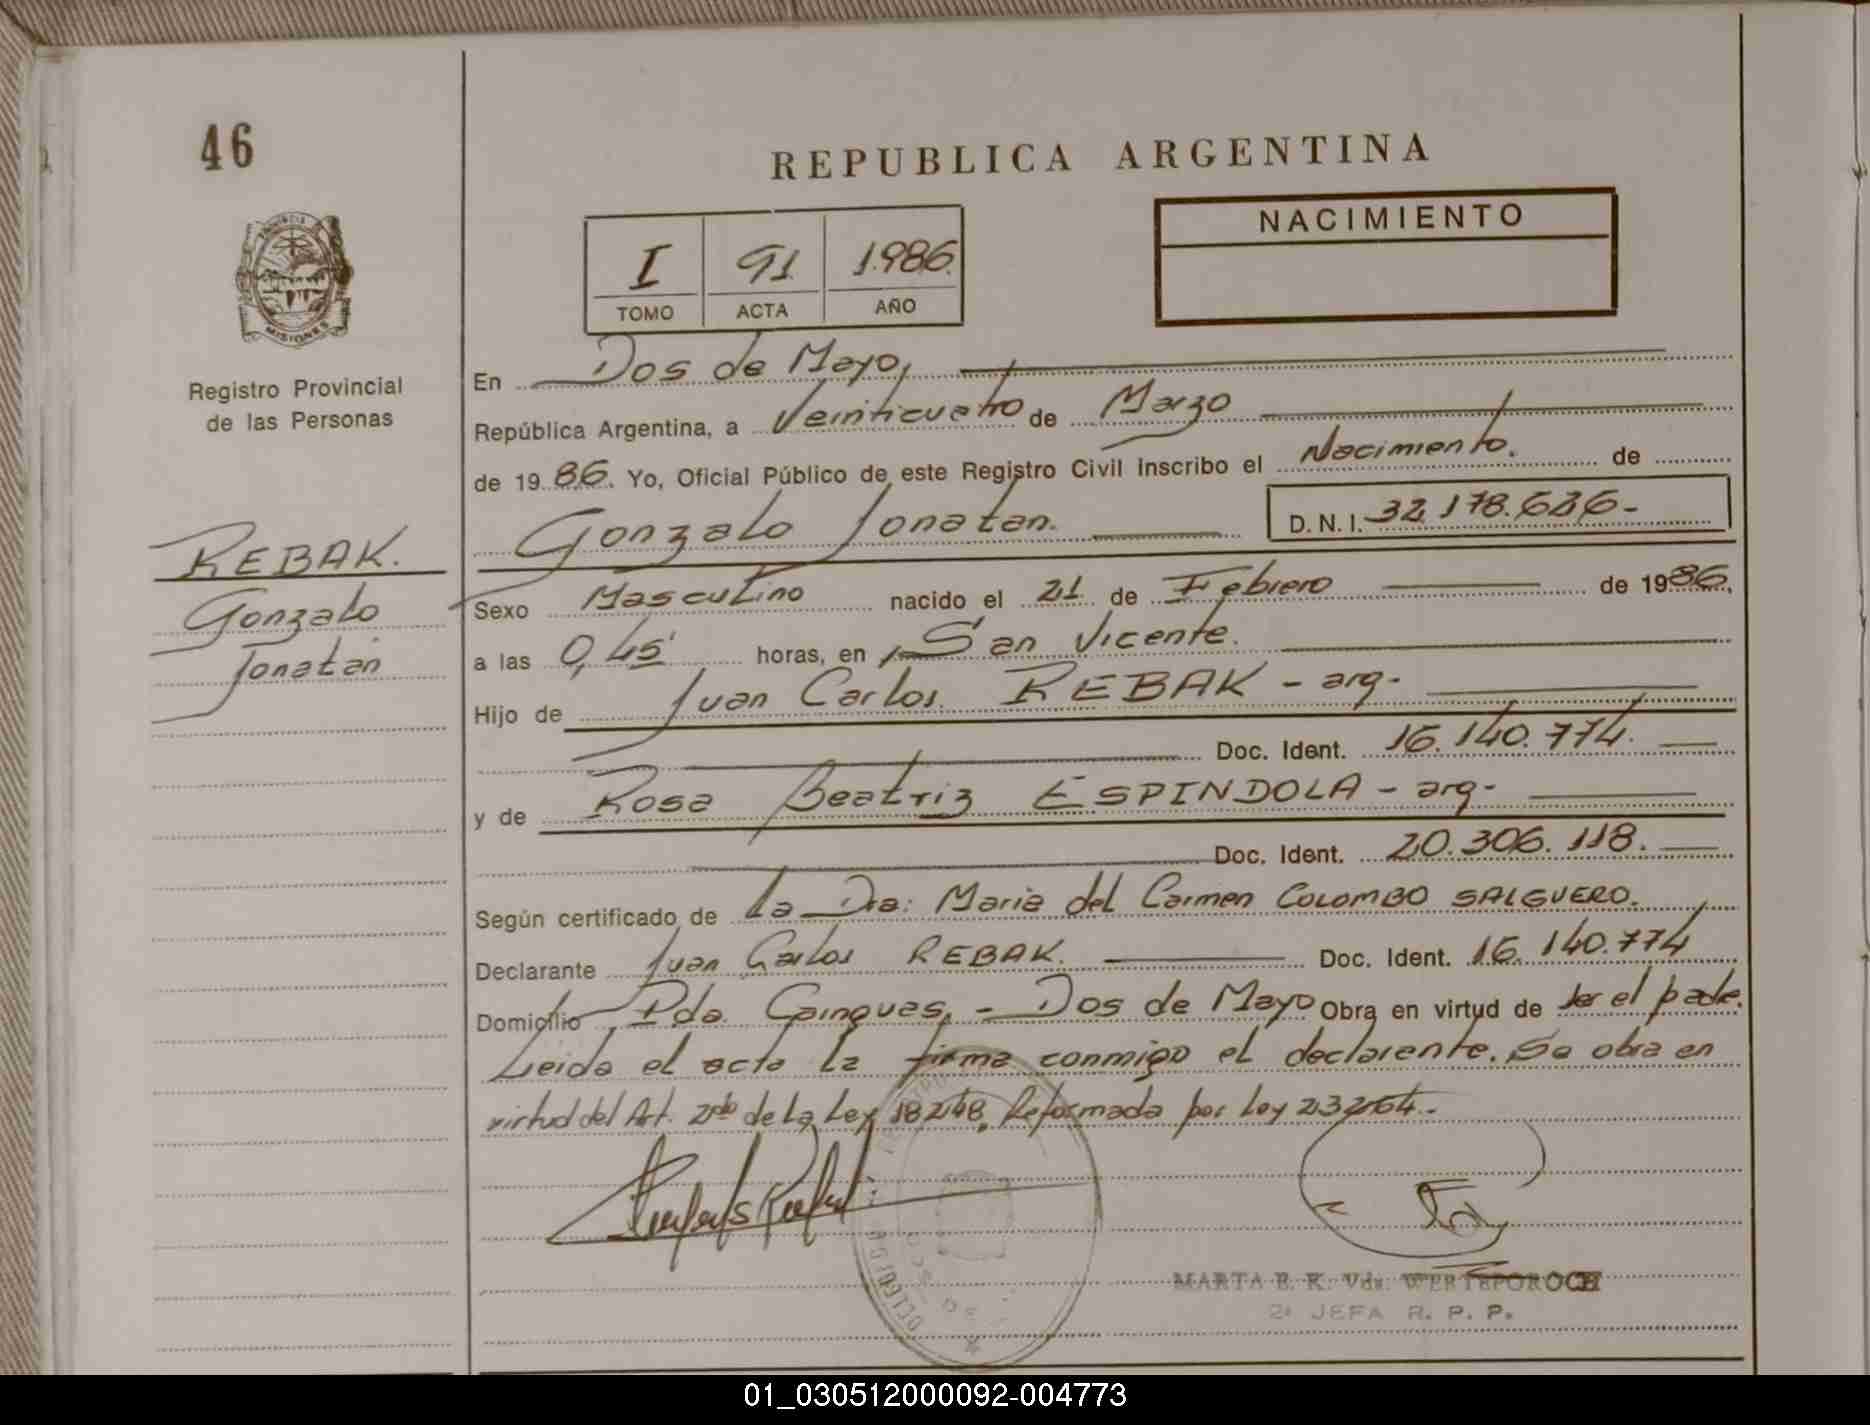 46
REPUBLICA ARGENTINA
NACIMIENTO
I 91 1.986.
TOMO ACTA AÑO
PROVINCIA
MISIONES
Registro Provincial
de las Personas
REBAK.
Gonzalo
Jonatan
En Dos de Mayo,
República Argentina, a Veinticuatro de Marzo
de 19 86. Yo, Oficial Público de este Registro Civil Inscribo el Nacimiento. de
Gonzalo Jonatan. D. N. I. 32.178.626-
Sexo Masculino nacido el 21 de Febrero de 19 86,
a las 0,45' horas, en San Vicente.
Hijo de Juan Carlos REBAK - arg-
Doc. Ident. 16.140.774.
y de Rosa Beatriz ESPINDOLA - arg-
Doc. Ident. 20.306.118.
Según certificado de la Dra: Maria del Carmen COLOMBO SALGUERO.
Declarante Juan Carlos REBAK. Doc. Ident. 16.140.774
Domicilio Pda. - Dos de Mayo Obra en virtud de ser el padre.
Leida el acta la firma conmigo el declarante. Se obra en
virtud del Art. 2do de la Ley 18248, Reformada por Ley 23264.-
MARTA E. K. Vda.
2a JEFA R. P. P.
01_030512000092-004773